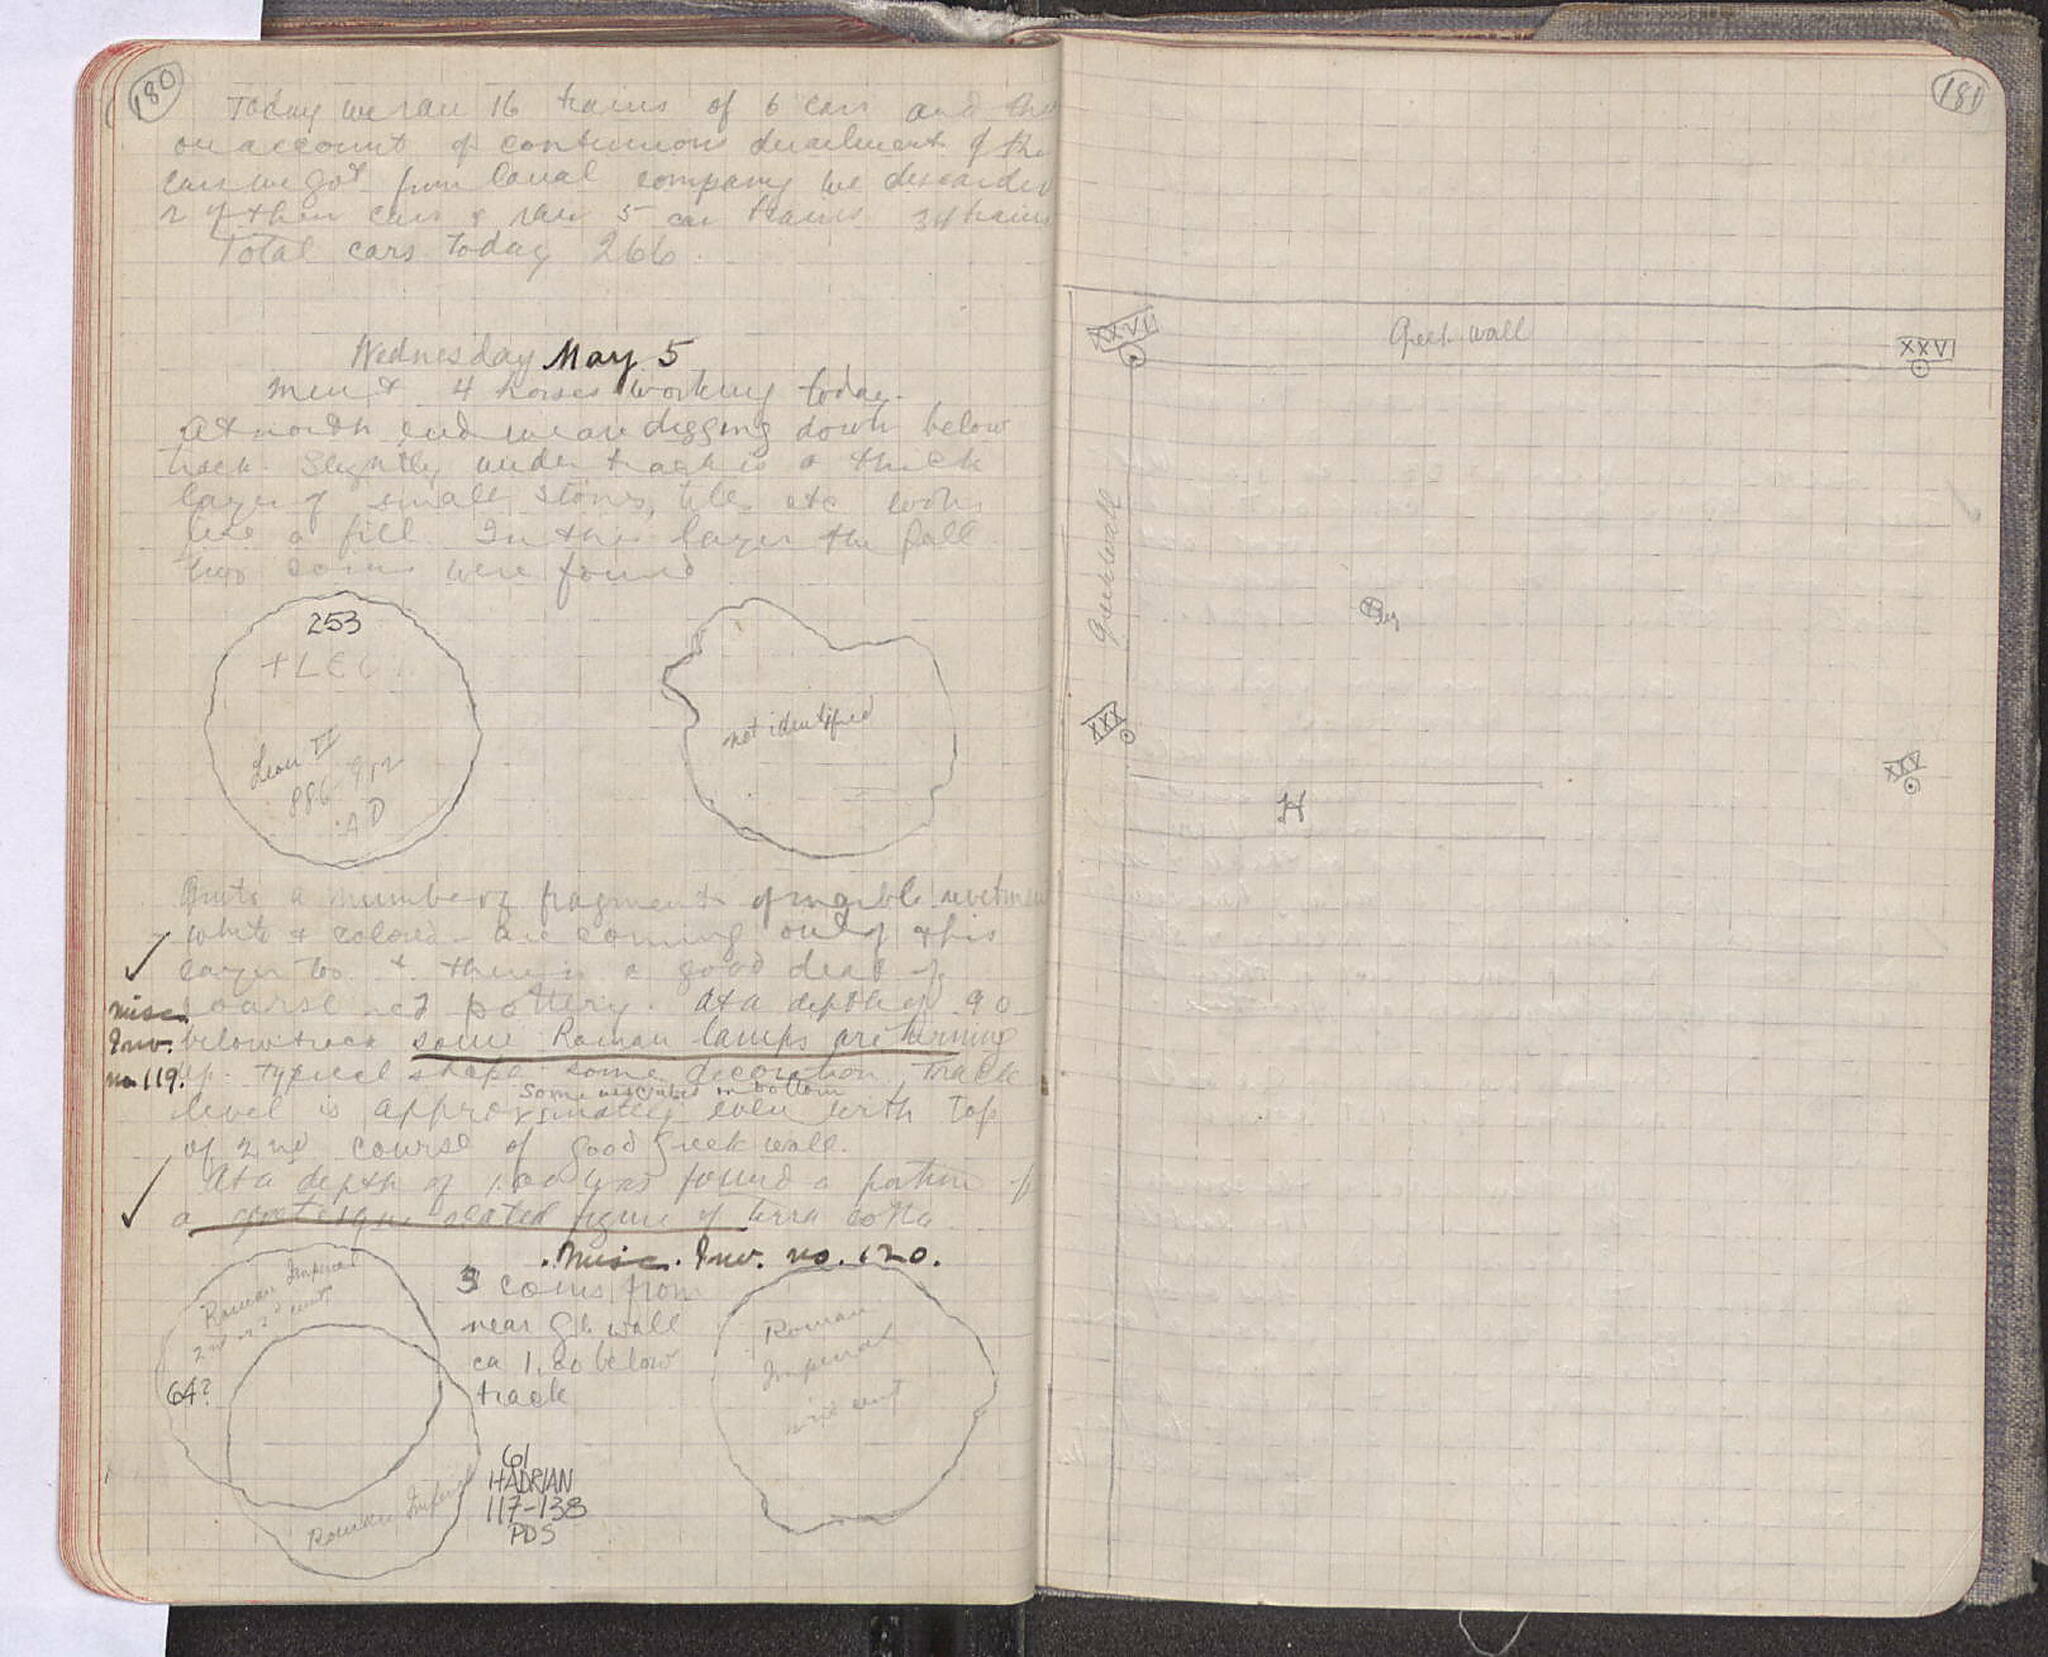 180
Today we ran 16 trains of 6 cars and then
on account of continuous derailment of the
cars we got from Canal company we discarded
2 of their cars & ran 5 car trains. 34 trains
Total cars today 266.
Wednesday May 5
Men & 4 horses working today.
At north end we are digging down below
track. Slightly under track is a thick
layer of small stones, tiles etc looks
like a fill. In this layer the foll
two coins were found
253
+LEO
Leon VI
886-912
AD
not identified
Quite a number of fragments of marble revetment
white & colored are coming out of this
layer too & there is a good deal of
coarse red pottery. At a depth of .90
below track some Roman lamps are turning
up. typical shape some decoration, Track
some inscribed on bottom
level is approximately even with top
of 2nd course of good Greek wall.
At a depth of 1.00 was found a portion of
a grotesque seated figure of terra cotta
Misc.
Inv.
no 119.
Misc. Inv. no. 120.
Roman Imperial
2nd cent
64?
Roman Imperial
3 coins from
near Gk. wall
ca 1.20 below
track
61
HADRIAN
117-138
PDS
Roman
Imperial
cent
181
XXVII
Greek wall
XXVI
Greek wall
XXX
H
XXV